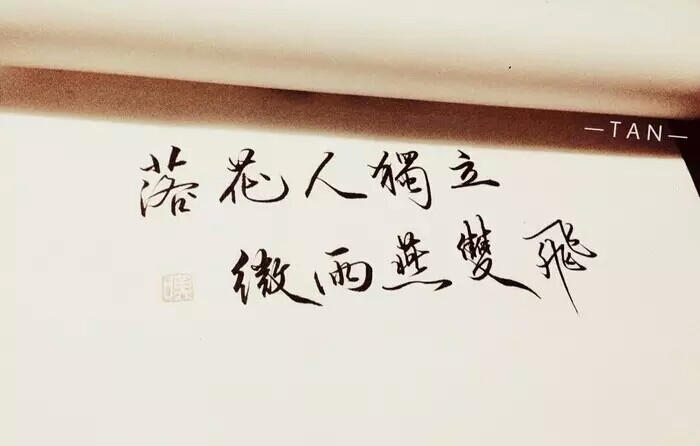 —TAN—
落花人獨立
微雨燕雙飛